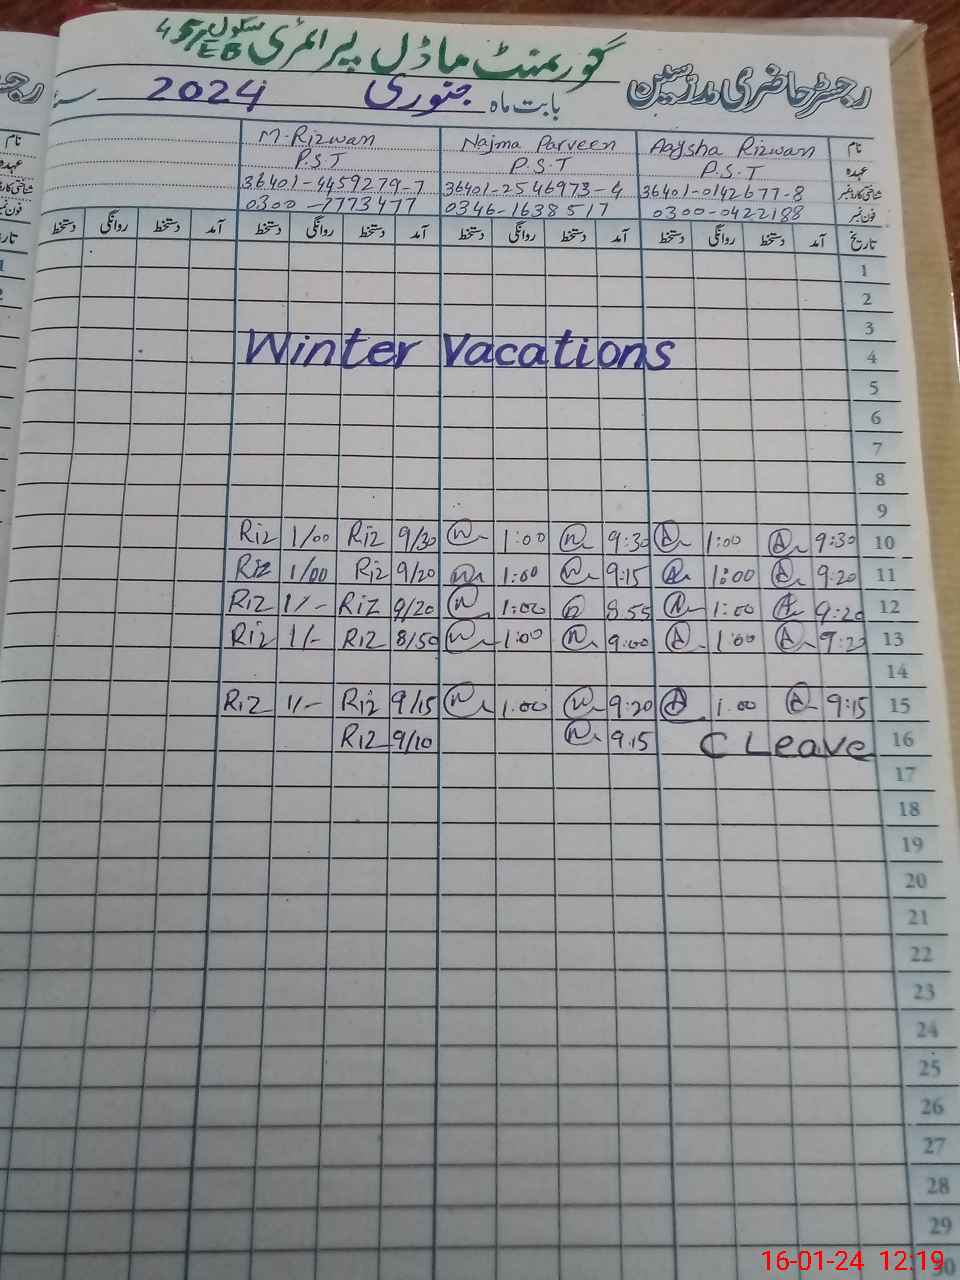 گورنمنٹ ماڈل پرائمری سکول 45/EB
رجسٹر حاضری مدرسین بابت ماہ جنوری 2024
نام Aaysha Rizwan Najma Parveen M-Rizwan
عہدہ P.S.T P.S.T P.S.T
شناختی کارڈ نمبر 36401-0142677-8 36401-2546973-4 36401-4459279-7
فون نمبر 0300-0422188 0346-1638517 0300-7773477
تاریخ آمد دستخط روانگی دستخط آمد دستخط روانگی دستخط آمد دستخط روانگی دستخط آمد دستخط روانگی دستخط
1
2
3
Winter Vacations
4
5
6
7
8
9
Riz 1/00 Riz 9/30 1:00 9:30 1:00 9:30 10
Riz 1/00 Riz 9/20 1:00 9:15 1:00 9:20 11
Riz 1/- Riz 9/20 1:00 8:55 1:00 9:20 12
Riz 1/- Riz 8/50 1:00 9:00 1:00 9:20 13
14
Riz 1/- Riz 9/15 1.00 9:20 1.00 9:15 15
Riz 9/10 9.15 C Leave 16
17
18
19
20
21
22
23
24
25
26
27
28
29
30
16-01-24 12:19